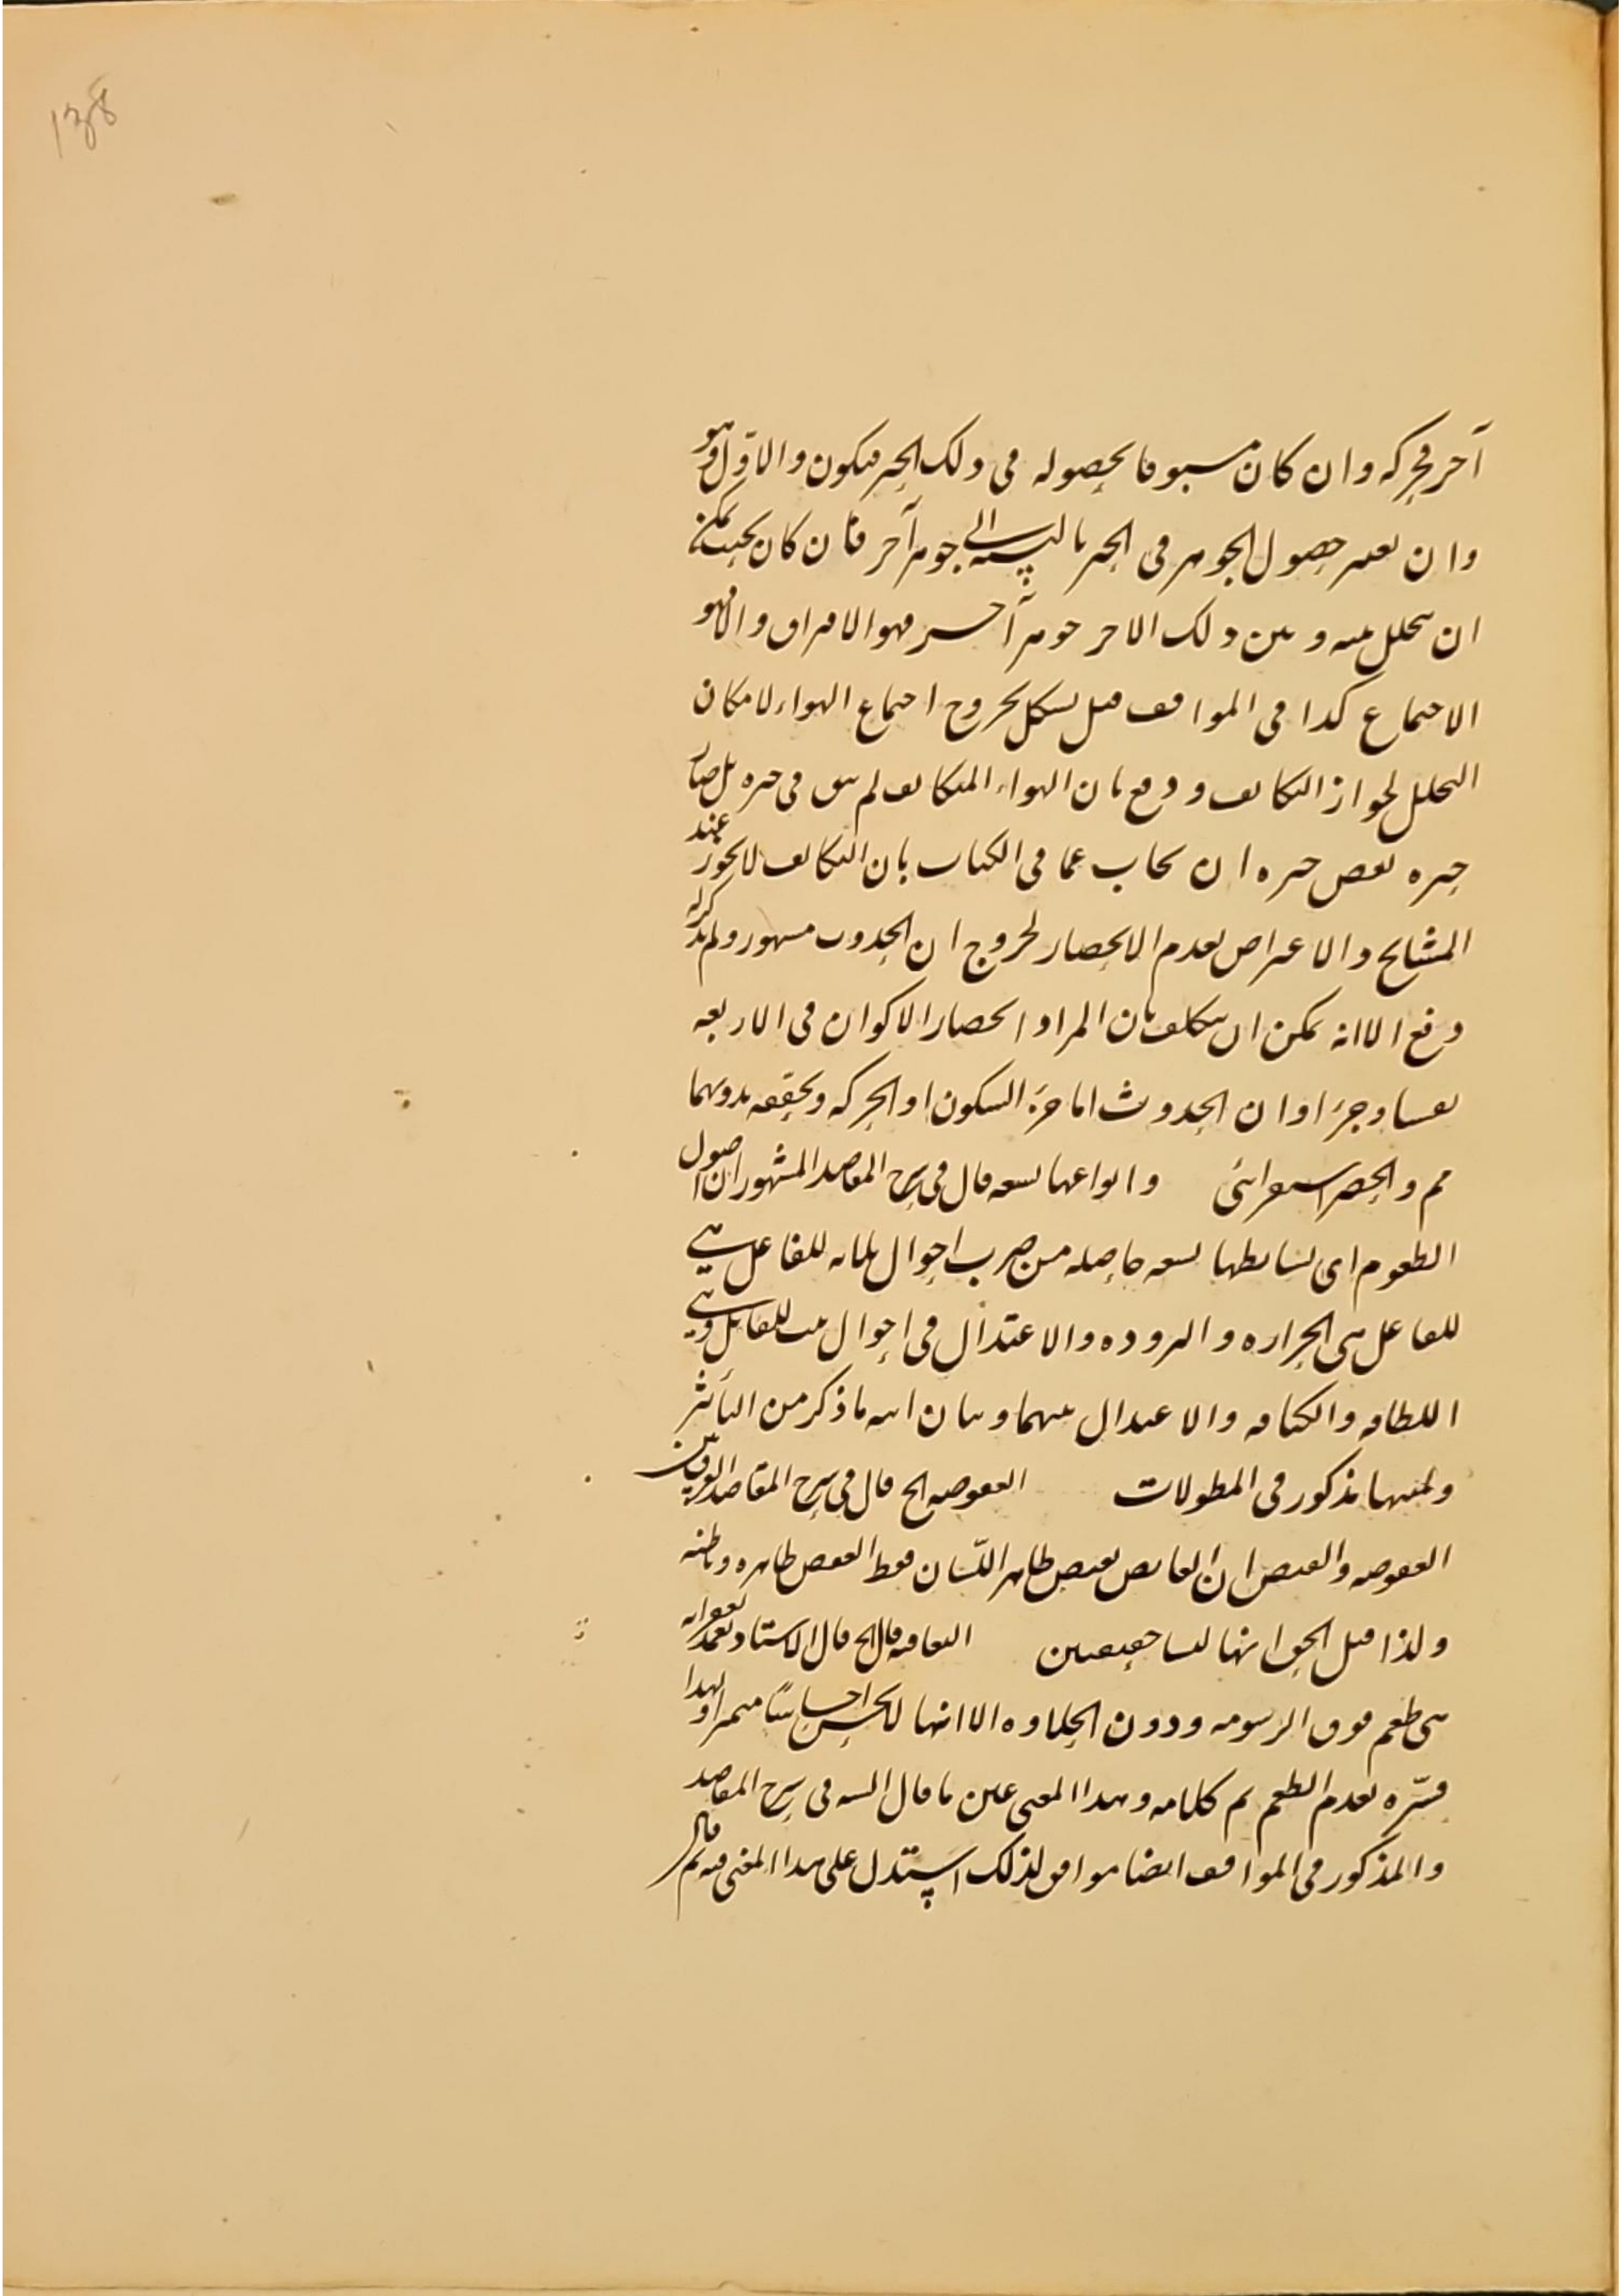 138
آخر فحركة وان كان مسبوقا بحصوله في ذلك الحيز فسكون والاول وهو
وان يعتبر حصول الجوهر في الحيز بالنسبة الى جوهر آخر فان كان بحيث يمكن
ان يتخلل بينه وبين ذلك الاخر جوهر آخر فهو الافتراق والا فهو
الاجتماع كذا في المواقف قيل يشكل بخروج اجتماع الهواء لامكان
التخلل لجواز التكاثف ودفع بان الهواء المتكاثف لم يبق في حيزه بل صار
حيزه بعض حيزه ان يجاب عما في الكتاب بان التكاثف لا يجوز عند
المشايخ والاعتراض بعدم الانحصار لخروج ان الحدوث مشهور ولم يذكر له
دفع الا انه يمكن ان يتكلف بان المراد انحصار الاكوان في الاربعة
نفسا وجزءا وان الحدوث اما جزء السكون او الحركة وتحققه بدونهما
مم والحصر استقرائي وانواعها تسعة قال في شرح المقاصد المشهور ان اصول
الطعوم اي بسايطها تسعة حاصلة من ضرب احوال ثلثة للفاعل هي
للفاعل هي الحرارة والبرودة والاعتدال في احوال للقابل وهي
اللطافة والكثافة والاعتدال بينهما وبيان انية ما ذكر من التأثير
ولميتها مذكور في المطولات العفوصة الخ قال في شرح المقاصد الفرق بين
العفوصة والقبض ان القابض يقبض ظاهر اللسان فقط العفص ظاهره وباطنه
ولذا قيل الحق انهما ليسا حقيقيين التفاهة قال الخ قال الاستاد تغمد بغفرانه
هي طعم فوق الدسومة ودون الحلاوة الا انها لا يحس احساسا متميزا ولهذا
فسره بعدم الطعم تم كلامه وهذا المعنى عين ما قال في شرح المقاصد
والمذكور في المواقف ايضا موافق لذلك استدل على هذا المعنى فيه ثم قال